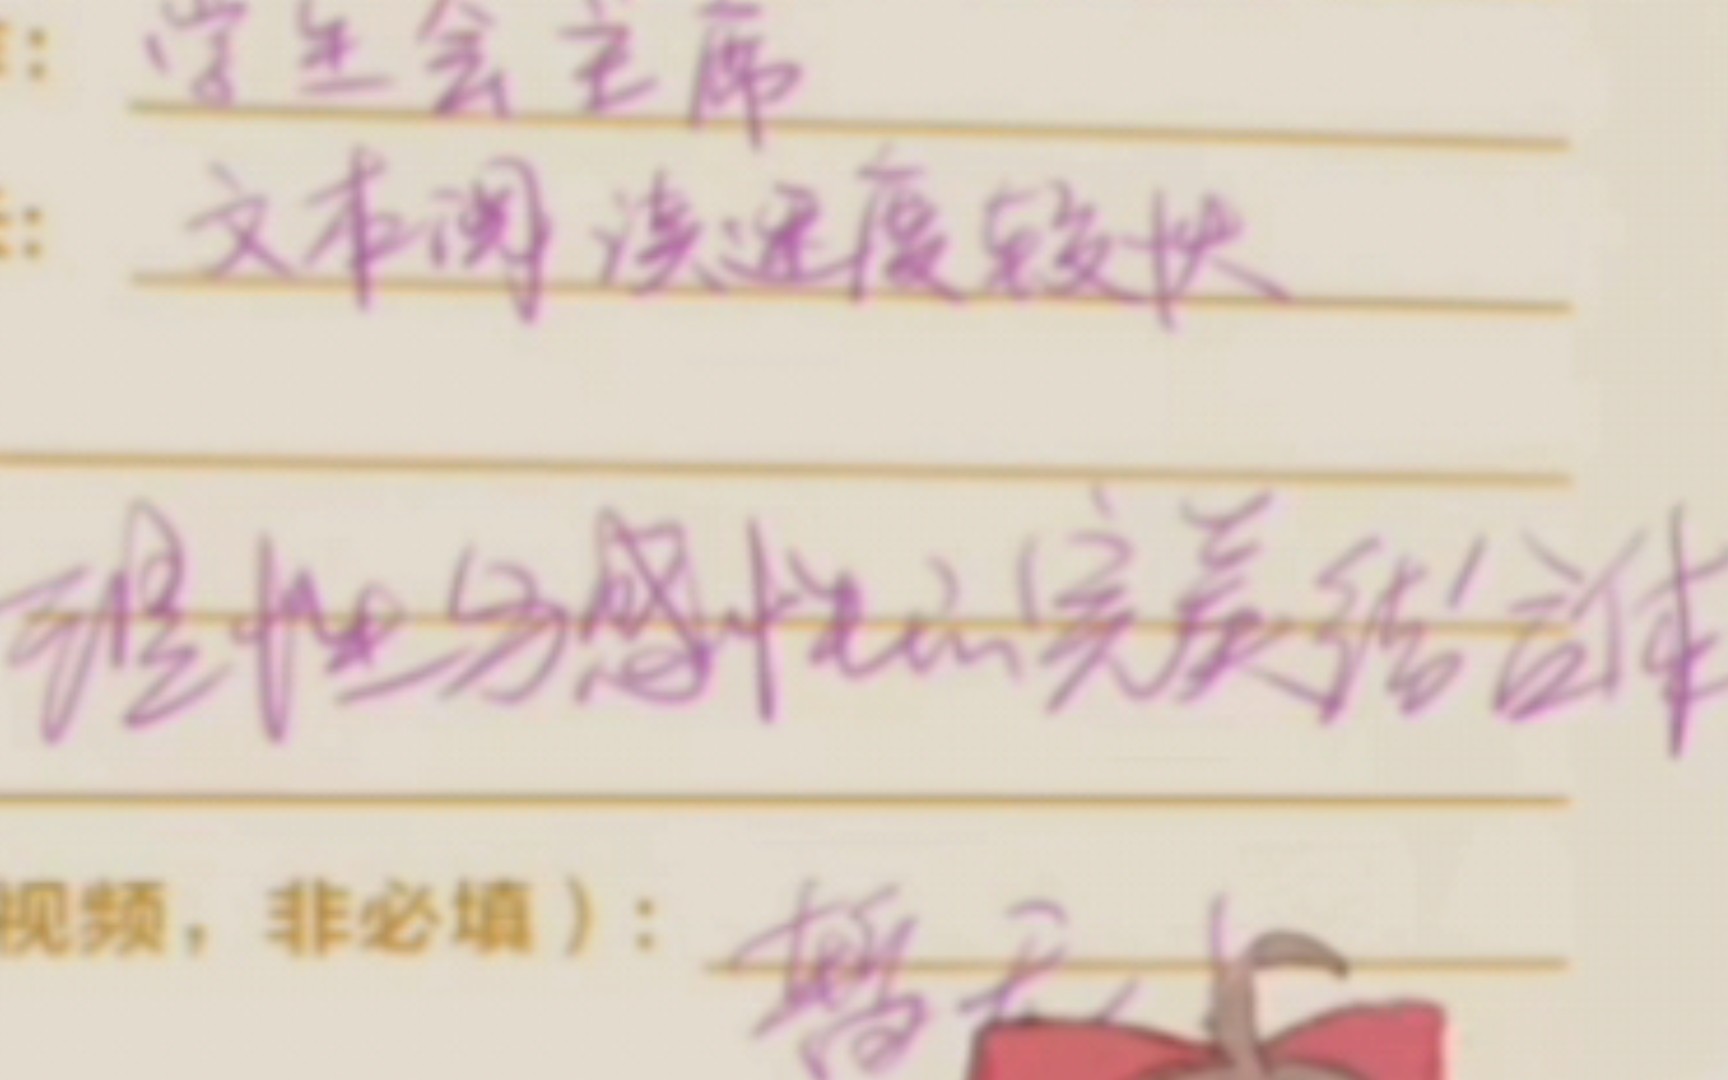 ：学生会主席
：文本阅读速度较快
理性与感性的完美结合体
视频，非必填）：暂无